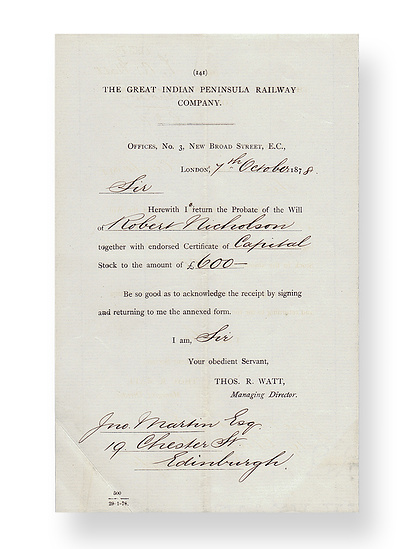 (141)
THE GREAT INDIAN PENINSULA RAILWAY
COMPANY.
OFFICES, NO. 3, NEW BROAD STREET, E.C.,
LONDON, 7th October 1878.
Sir
Herewith I return the Probate of the Will
of Robert Nicholson
together with endorsed Certificate of Capital
Stock to the amount of £600—
Be so good as to acknowledge the receipt by signing
and returning to me the annexed form.
I am, Sir
Your obedient Servant,
THOS. R. WATT,
Managing Director.
Jno. Martin Esq.
19 Chester St.
Edinburgh.
500
29-1-78.